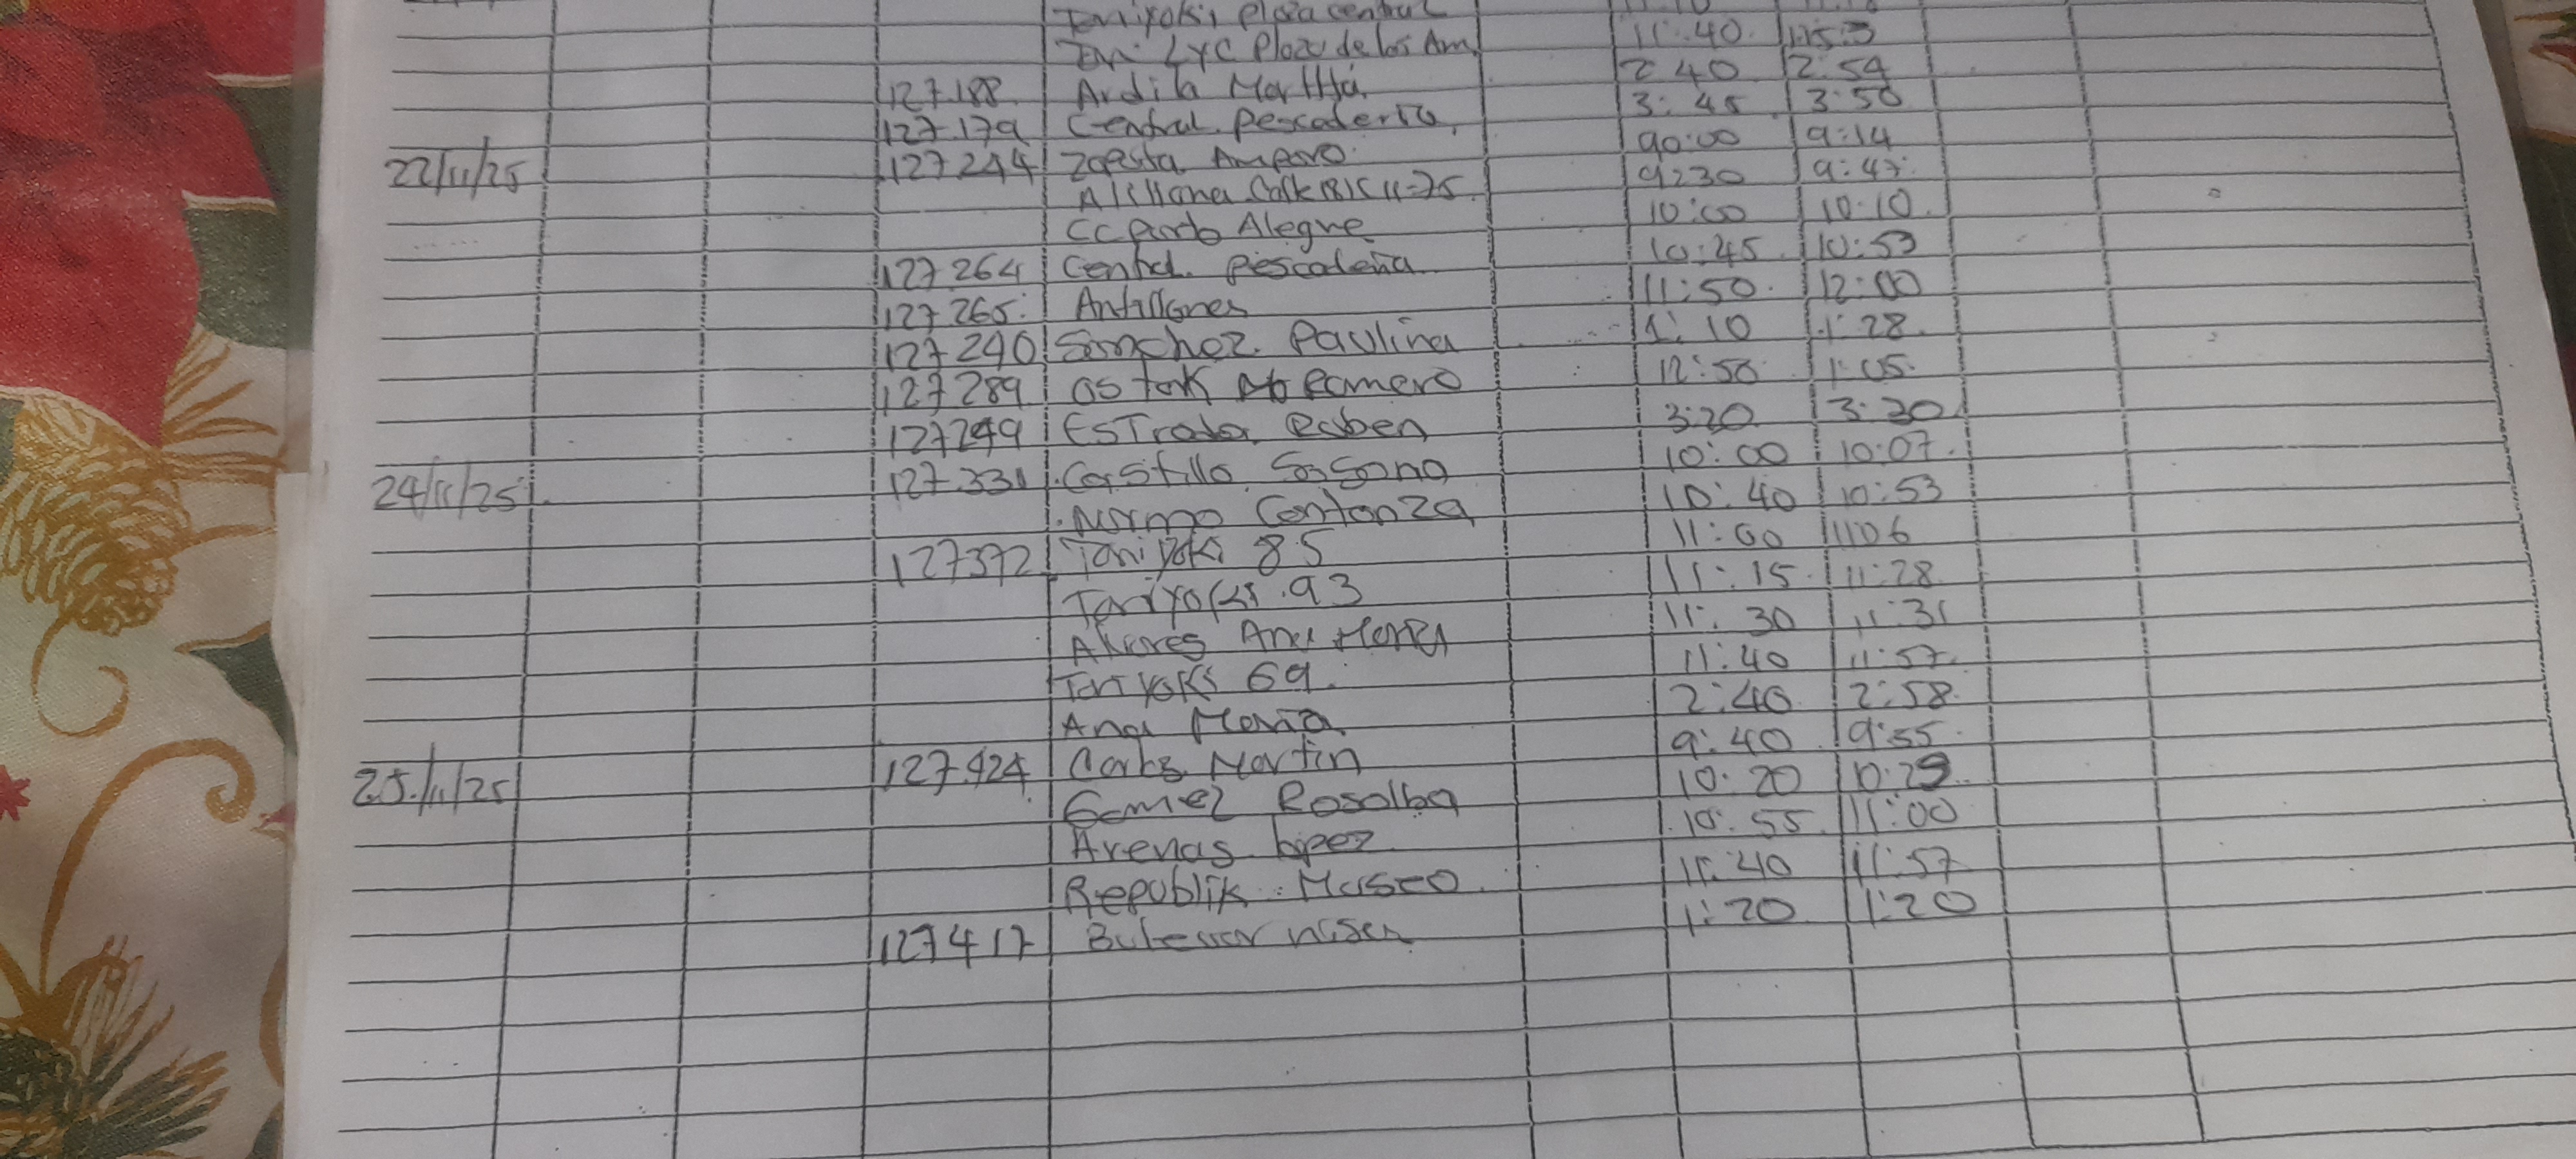 Teriyoki plaza central
Teri LYC Plaza de las Am. 11:40 11:53
127.188 Ardila Martha 2:40 2:54
127.179 Central Pescaderia 3:45 3:50
22/11/25 127244 Zapata Amparo 90:00 9:14
11-75 9:30 9:47
CC Alegre 10:00 10:10
127264 Central Pescaderia 10:45 10:53
127265 Antillanes 11:50 12:00
127290 Sanchez Paulina 1:10 1:28
127289 Romero 12:50 1:05
127299 Estrada Ruben 3:20 3:20
24/11/25 127.331 Castillo Sosana 10:00 10:07
Norma Contanza 10:40 10:53
127372 Teriyoki 85 11:00 1106
Teriyoki 93 11:15 11:28
Alvares Ana Maria 11:30 11:31
Teriyoki 69 11:40 11:57
Ana Maria 2:40 2:58
25/11/25 127.424 Carlos Martin 9:40 9:55
Gomez Rosalba 10:20 10:29
Arenas lopez 10:55 11:00
Republik Museo 11:40 11:57
127417 1:20 1:20